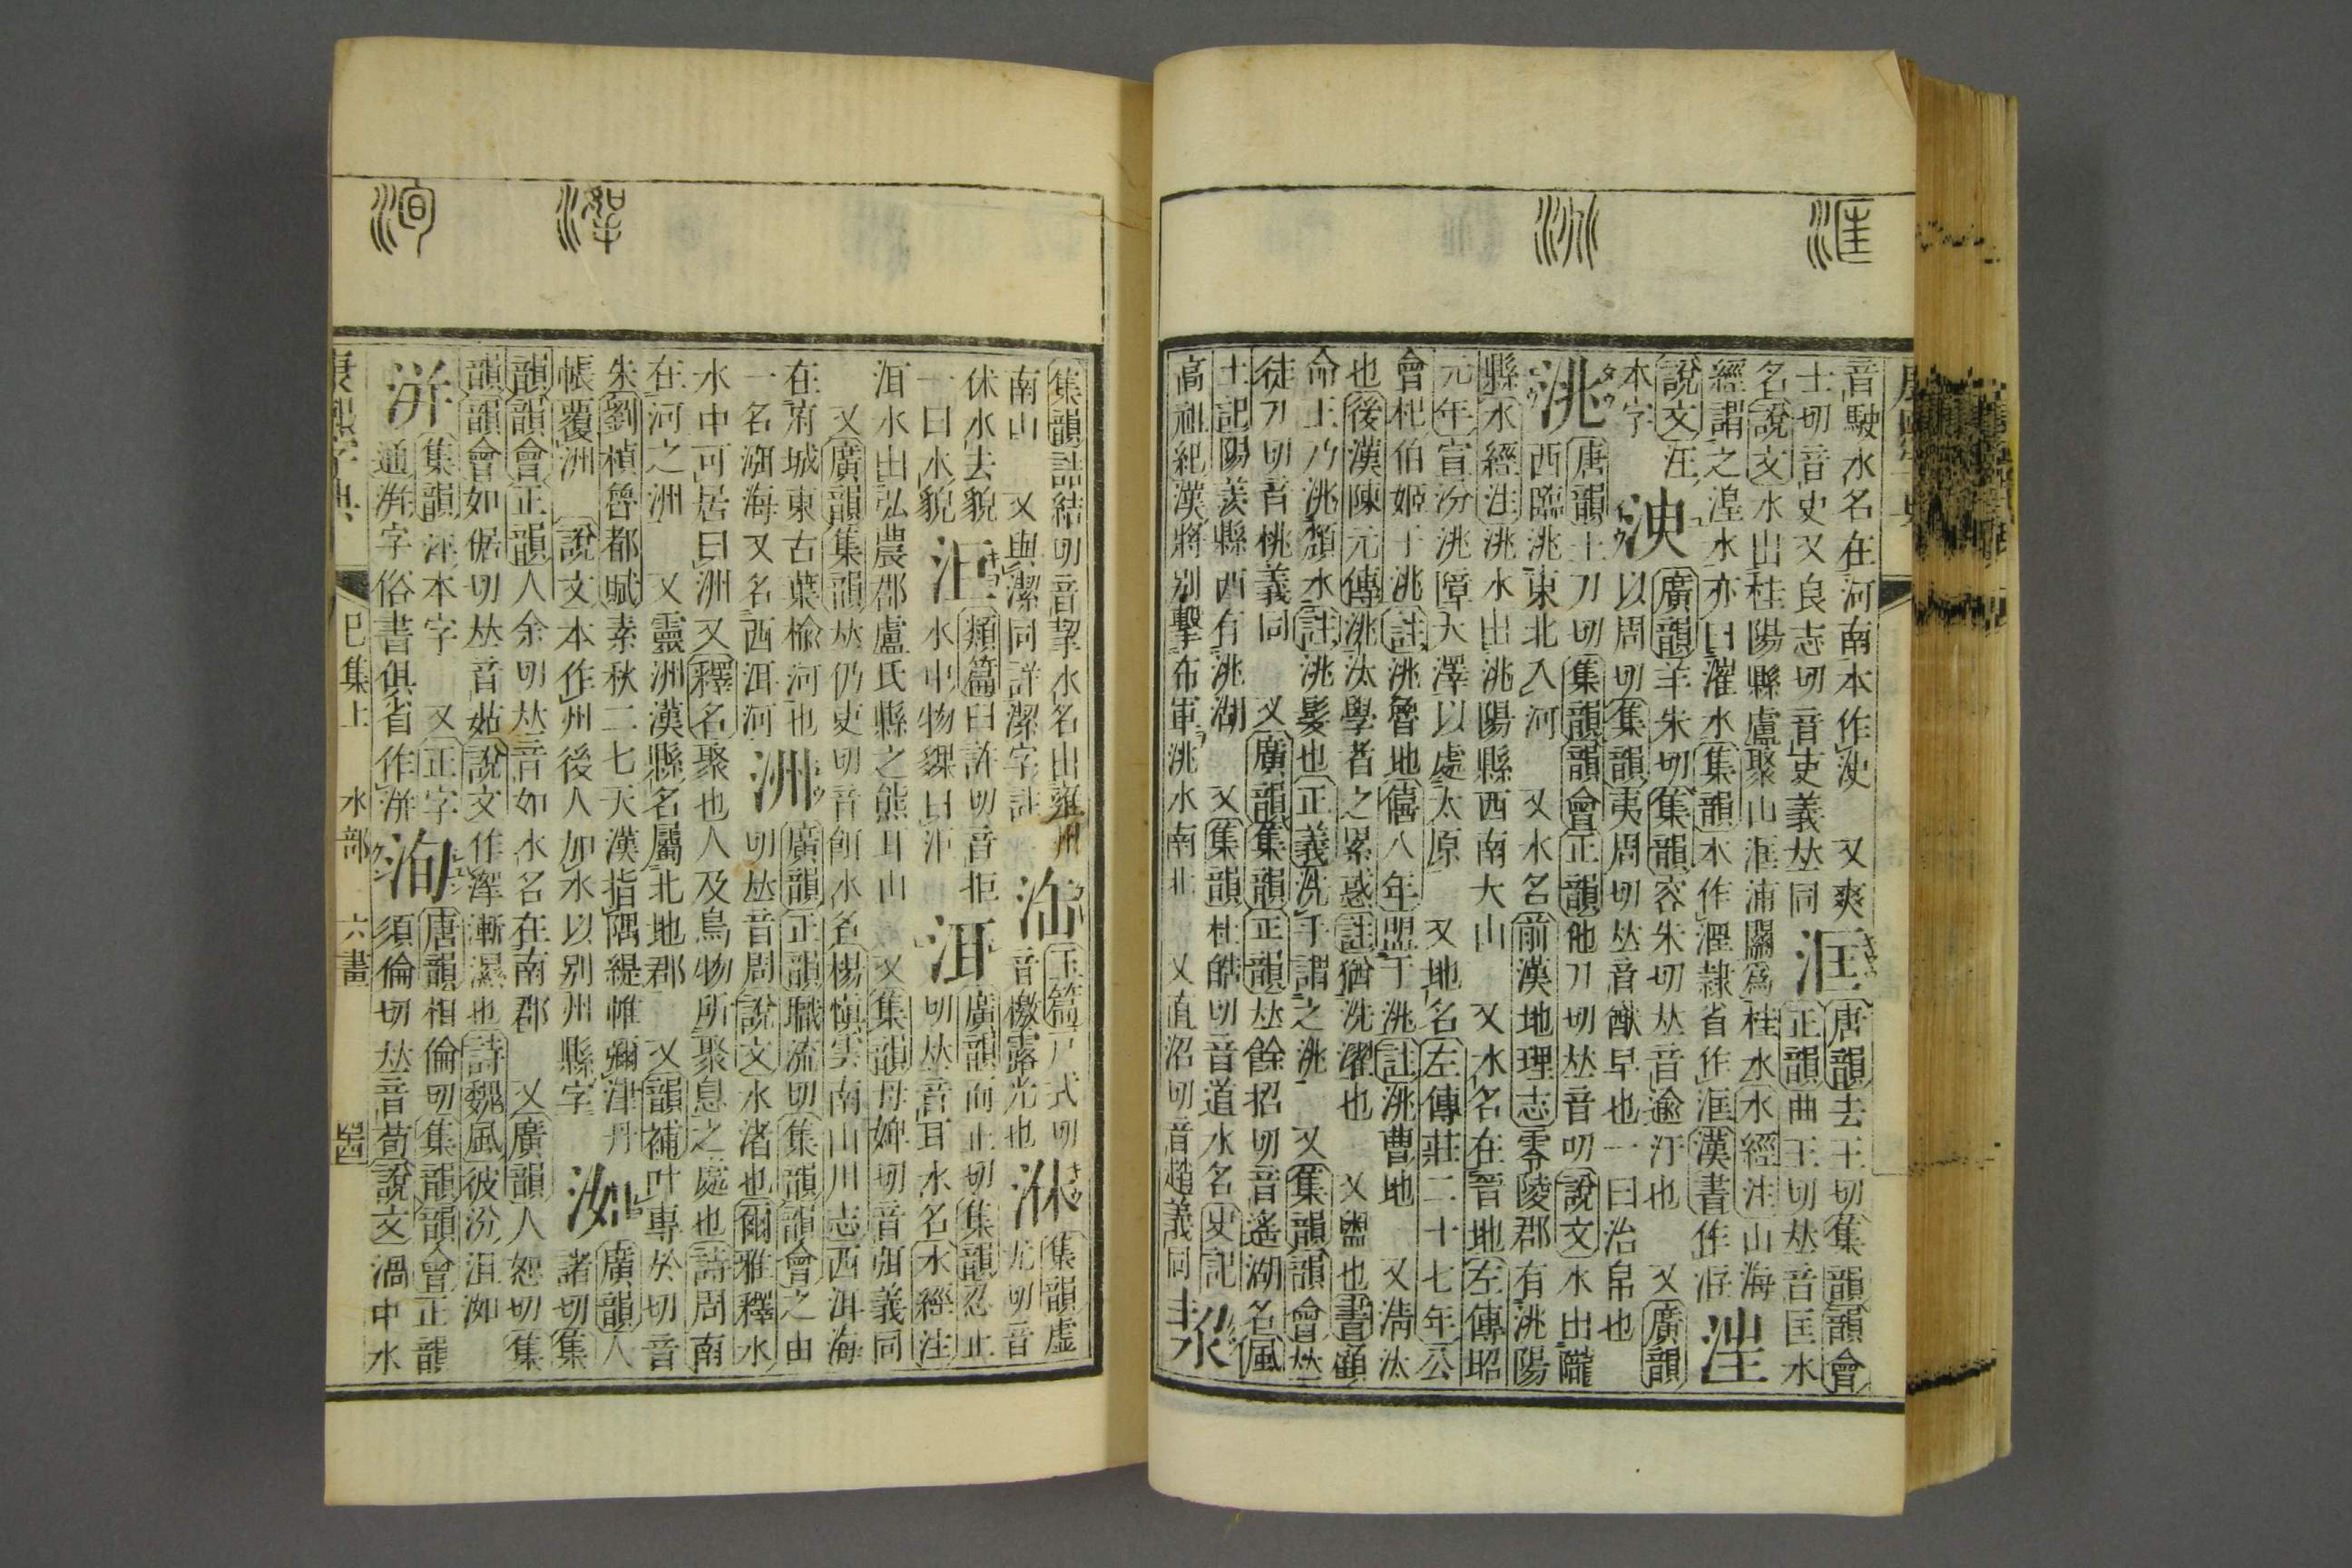 音駛水名在河南本作浂　又爽
士切音史又良志切音吏義𠀤同
洭
唐韻去王切集韻韻會
正韻曲王切𠀤音匡水
名說文水出桂陽縣盧聚山洭浦關爲桂水水經注山海
經謂之湟水亦曰灌水集韻本作湹隸省作洭漢書作洭
說文汪
本字
廣韻羊朱切集韻容朱切𠀤音逾汙也　又廣韻
以周切集韻夷周切𠀤音猷旱也一曰治帛也
洮
唐韻土刀切集韻韻會正韻他刀切𠀤音叨說文水出隴
西臨洮東北入河　又水名前漢地理志零陵郡有洮陽
縣水經注洮水出洮陽縣西南大山　又水名在晉地左傳昭
元年宣汾洮障大澤以處太原　又地名左傳莊二十七年公
會杞伯姬于洮註洮魯地僖八年盟于洮註洮曹地　又淸汰
也後漢陳元傳洮汰學者之累惑註猶洗濯也　又盥也書顧
命王乃洮頮水註洮髮也正義洗手謂之洮　又集韻韻會𠀤
徒刀切音桃義同　又廣韻集韻正韻𠀤餘招切音遙湖名風
土記陽羨縣西有洮湖　又集韻杜皓切音道水名史記
高祖紀漢將别擊布軍洮水南北　又直沼切音趙義同
洯
集韻詰結切音挈水名出雍州
南山　又與潔同詳潔字註
玉篇尸式切
音檄露光也
㳜
集韻虛
尤切音
休水去貌
一曰水貌
洰
類篇臼許切音拒
水中物䅽曰洰
洱
廣韻而止切集韻忍止
切𠀤音耳水名水經注
洱水出弘農郡盧氏縣之熊耳山　又集韻母婢切音弭義同
又廣韻集韻𠀤仍吏切音餌水名楊愼雲南山川志西洱海
在府城東古葉楡河也
一名洱海又名西洱河
洲
廣韻正韻職流切集韻韻會之由
切𠀤音周說文水渚也爾雅釋水
水中可居曰洲又釋名聚也人及鳥物所聚息之處也詩周南
在河之洲　又靈洲漢縣名屬北地郡　又韻補叶專於切音
朱劉楨魯都賦素秋二七天漢指隅緹帷彌津丹
帳覆洲　說文本作州後人加水以别州縣字
洳
廣韻人
諸切集
韻韻會正韻人余切𠀤音如水名在南郡　又廣韻人恕切集
韻韻會如倨切𠀤音茹說文作澤漸濕也詩魏風彼汾沮洳
洴
集韻洴本字　又正字
通洴字俗書俱省作洴
洵
唐韻相倫切集韻韻會正韻
須倫切𠀤音荀說文渦中水
康熙字典
巳集上　水部　六畫